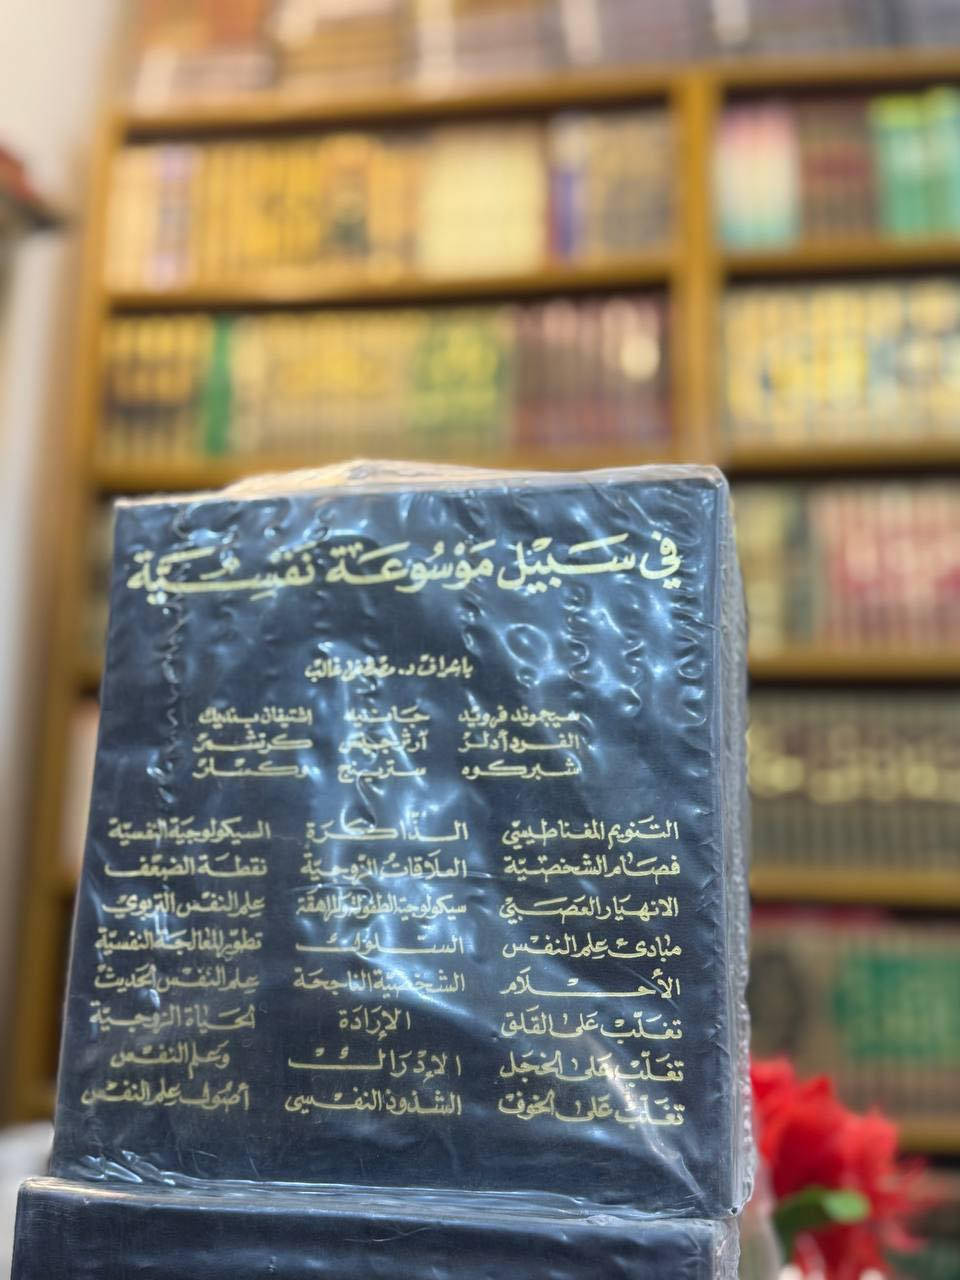 في سَبيْل مَوْسُوعَة نفسِيَّة
باشراف د. مصطفى غالب
سيجموند فرويد جان بياجيه اشتيفان بنديك
الفرد أدلر آرثر جيتس كرتشمر
شبركوه سترينج وكسلر
التنويم المغناطيسي الذاكرة السيكولوجية النفسيّة
فصام الشخصيّة العلاقات الزوجيّة نقطة الضعف
الانهيار العصَبي سيكولوجية الطفولة والمراهقة علم النفس التربوي
مبادئ علم النفس السلوك تطوير المعالجة النفسيّة
الأحلام الشخصيّة الناجحة علم النفس الحديث
تغلّب على القلق الإرادة الحياة الزوجيّة
تغلّب على الخجل الإدراك وعلم النفس
تغلّب على الخوف الشذوذ النفسي أصول علم النفس